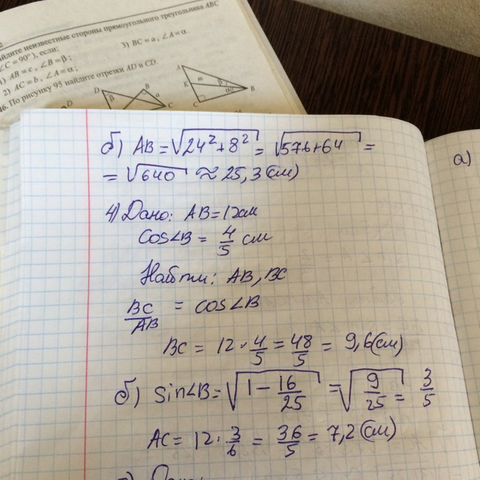 найдите неизвестные стороны прямоугольного треугольника ABC
∠C = 90°), если:
) AB = c, ∠B = β; 3) BC = a, ∠A = α.
2) AC = b, ∠A = α;
46. По рисунку 95 найдите отрезки AD и CD.
б) AB = √24² + 8² = √576 + 64 =
= √640 ≈ 25,3 (см)
4) Дано: AB = 12 см
cos∠B = 4/5 см
Найти: AB, BC
BC/AB = cos∠B
BC = 12 · 4/5 = 48/5 = 9,6 (см)
б) sin∠B = √1 - 16/25 = √9/25 = 3/5
AC = 12 · 3/6 = 36/5 = 7,2 (см)
а)